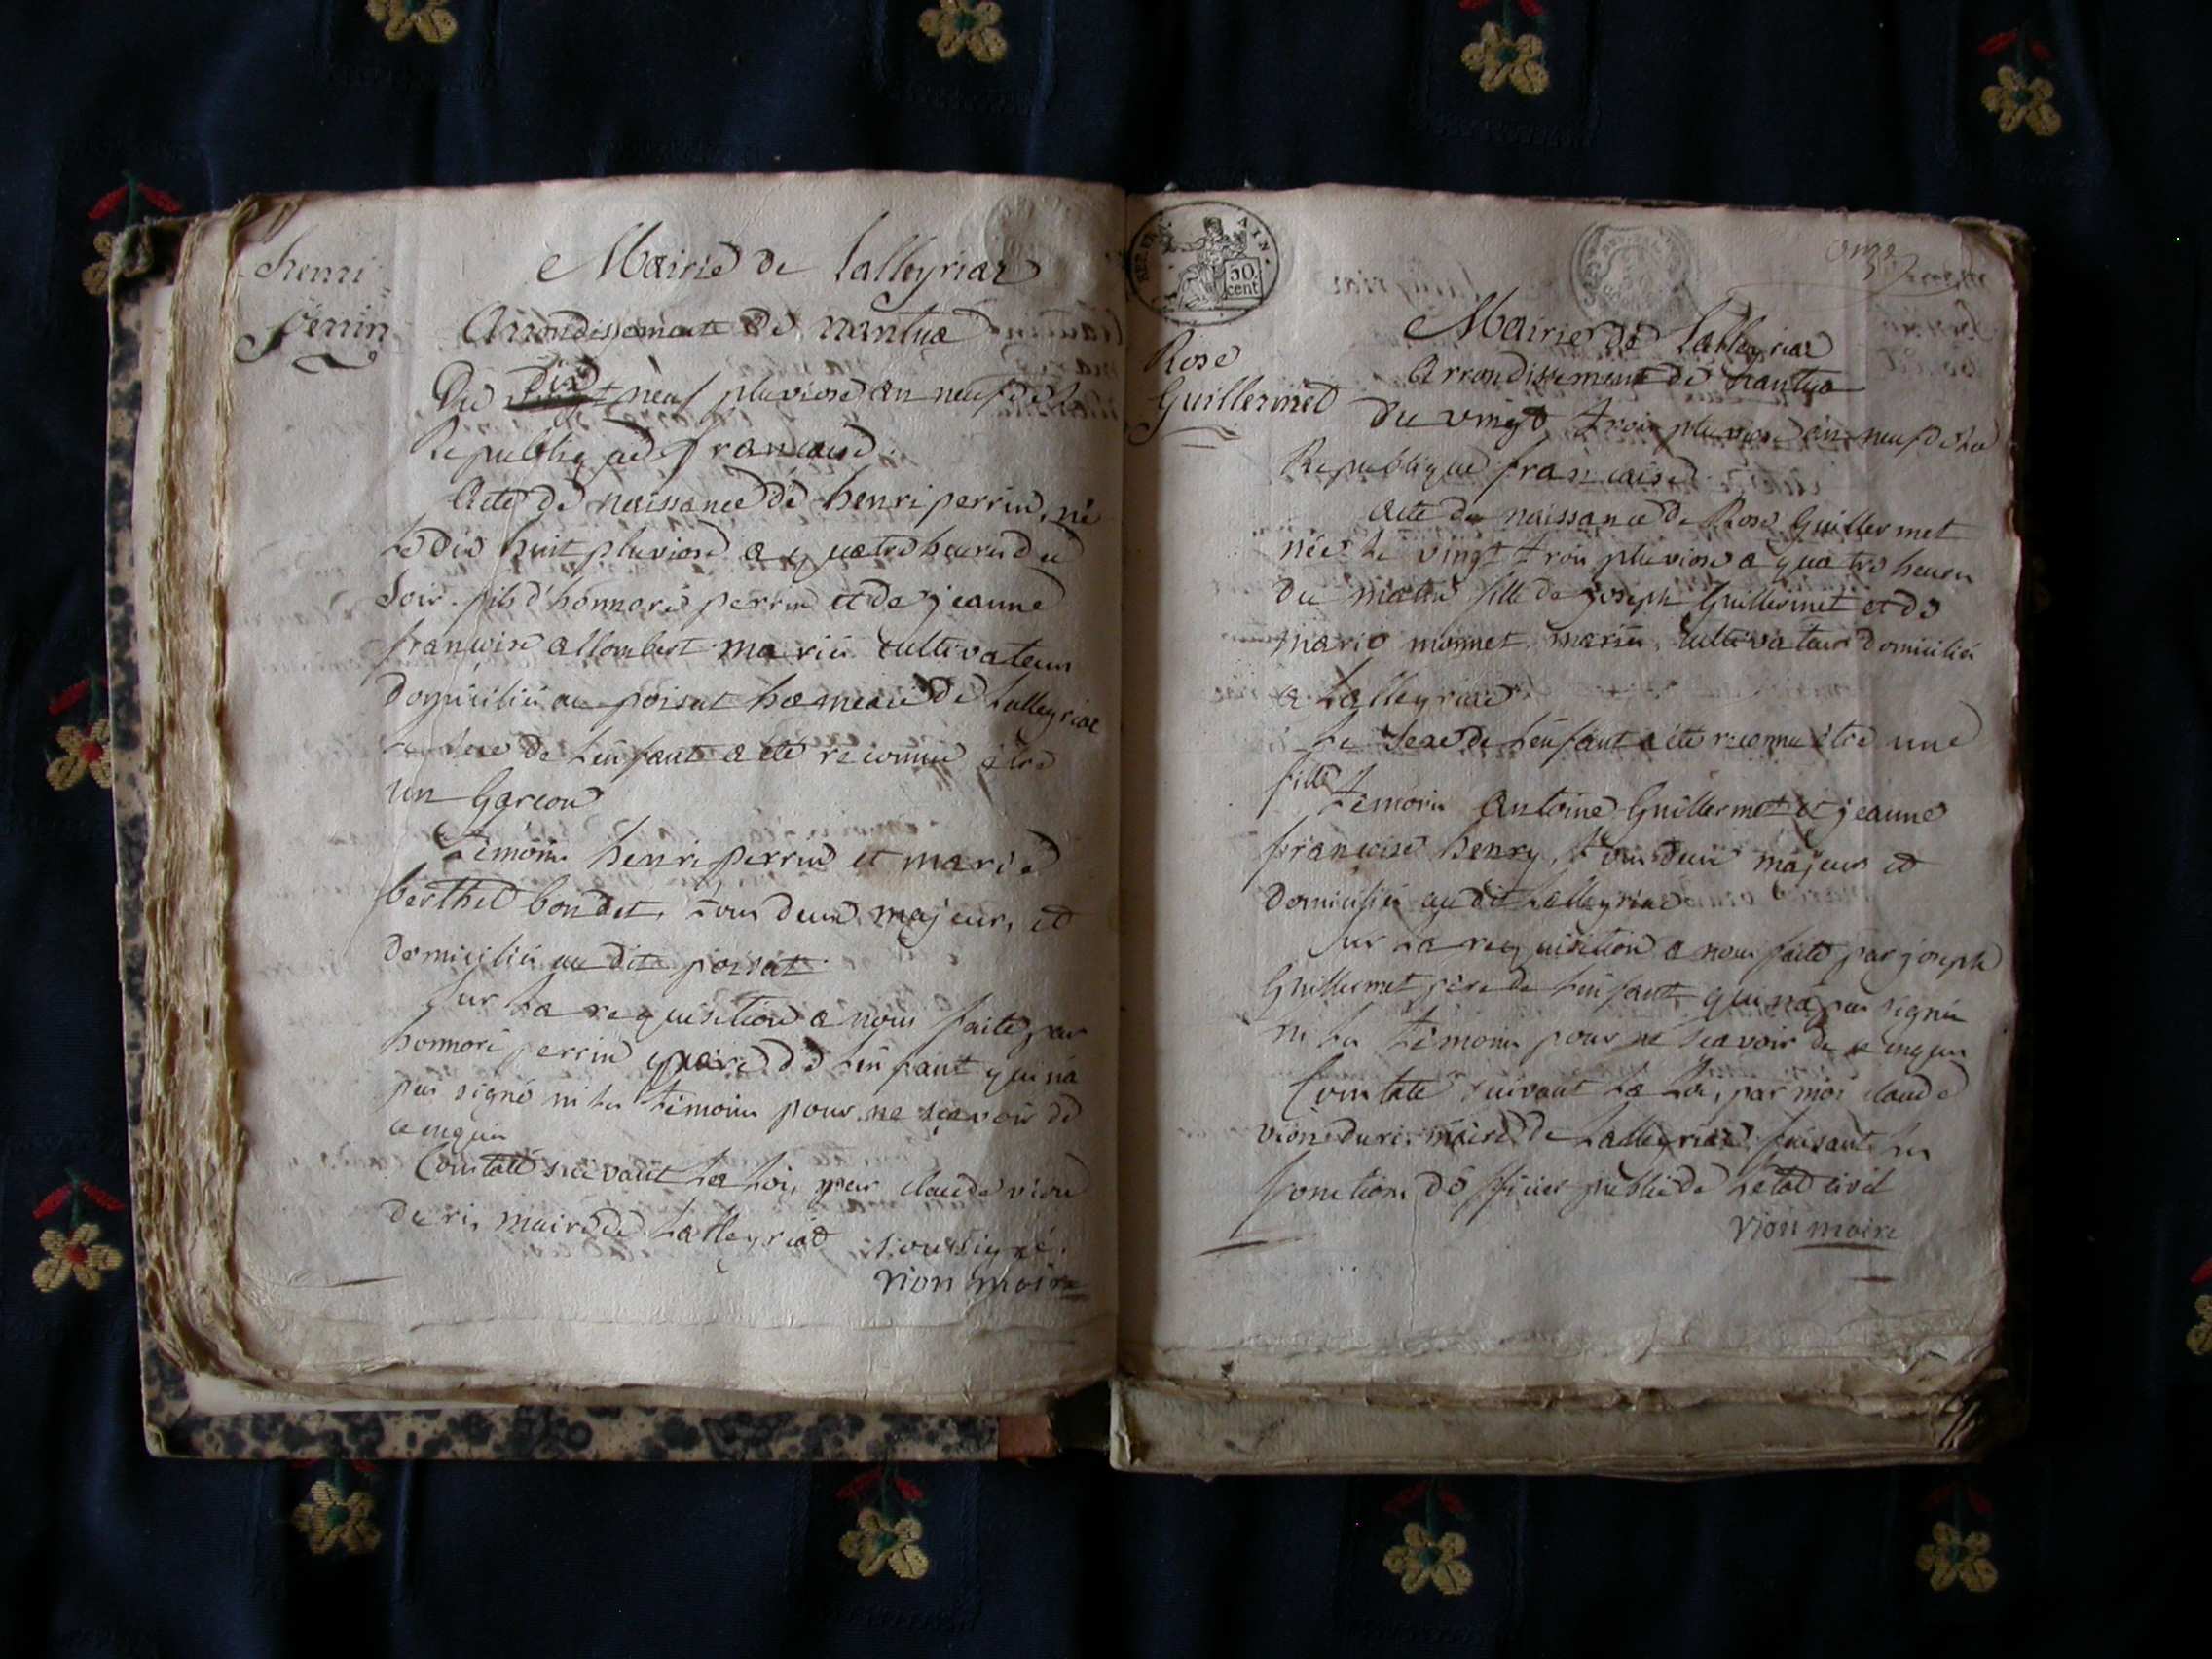 henri
perrin
Mairie de Lalleyriat
Arrondissement de nantua
Du dix neuf pluviose an neuf de la
Republique francaise.
Acte de naissance de henri perrin, né
le dix huit pluviose a quatre heures du
Soir. fils d'honnoré perrin et de jeanne
francoise allombert mariés cultivateurs
domiciliés au poisat hameau de Lalleyriat
le sexe de lenfant a été reconnu être
un Garcon
témoins henri perrin et marie
berthet bondet, tous deux majeurs, et
domiciliés au dit poisat.
Sur la requisition a nous faite par
honnoré perrin pere de lenfant qui n'a
pas signé ni les témoins pour ne sçavoir de
ce enquis
Constaté suivant la loi, par claude vion
duri, maire de Lalleyriat soussigné.
vion maire
REP. FRA
AIN.
50
cent
onze
Rose
Guillermet
Mairie de Lalleyriat
Arrondissement de Nantua
Du vingt trois pluviose an neuf de la
Republique francaise.
Acte de naissance de Rose Guillermet
née le vingt trois pluviose a quatre heures
du matin fille de joseph Guillermet et de
marie monnet mariés, cultivateurs domiciliés
a Lalleyriat
le Sexe de lenfant a été reconnu être une
fille
témoins Antoine Guillermet et jeanne
francoise henry, tous deux majeurs et
domiciliés au dit Lalleyriat
Sur la requisition a nous faite par joseph
Guillermet père de lenfant qui n'a pas signé
ni les témoins pour ne sçavoir de ce enquis
Constaté suivant la Loi, par moi claude
vion duri, maire de Lalleyriat faisant les
fonctions d'officier public de Letat civil
vion maire